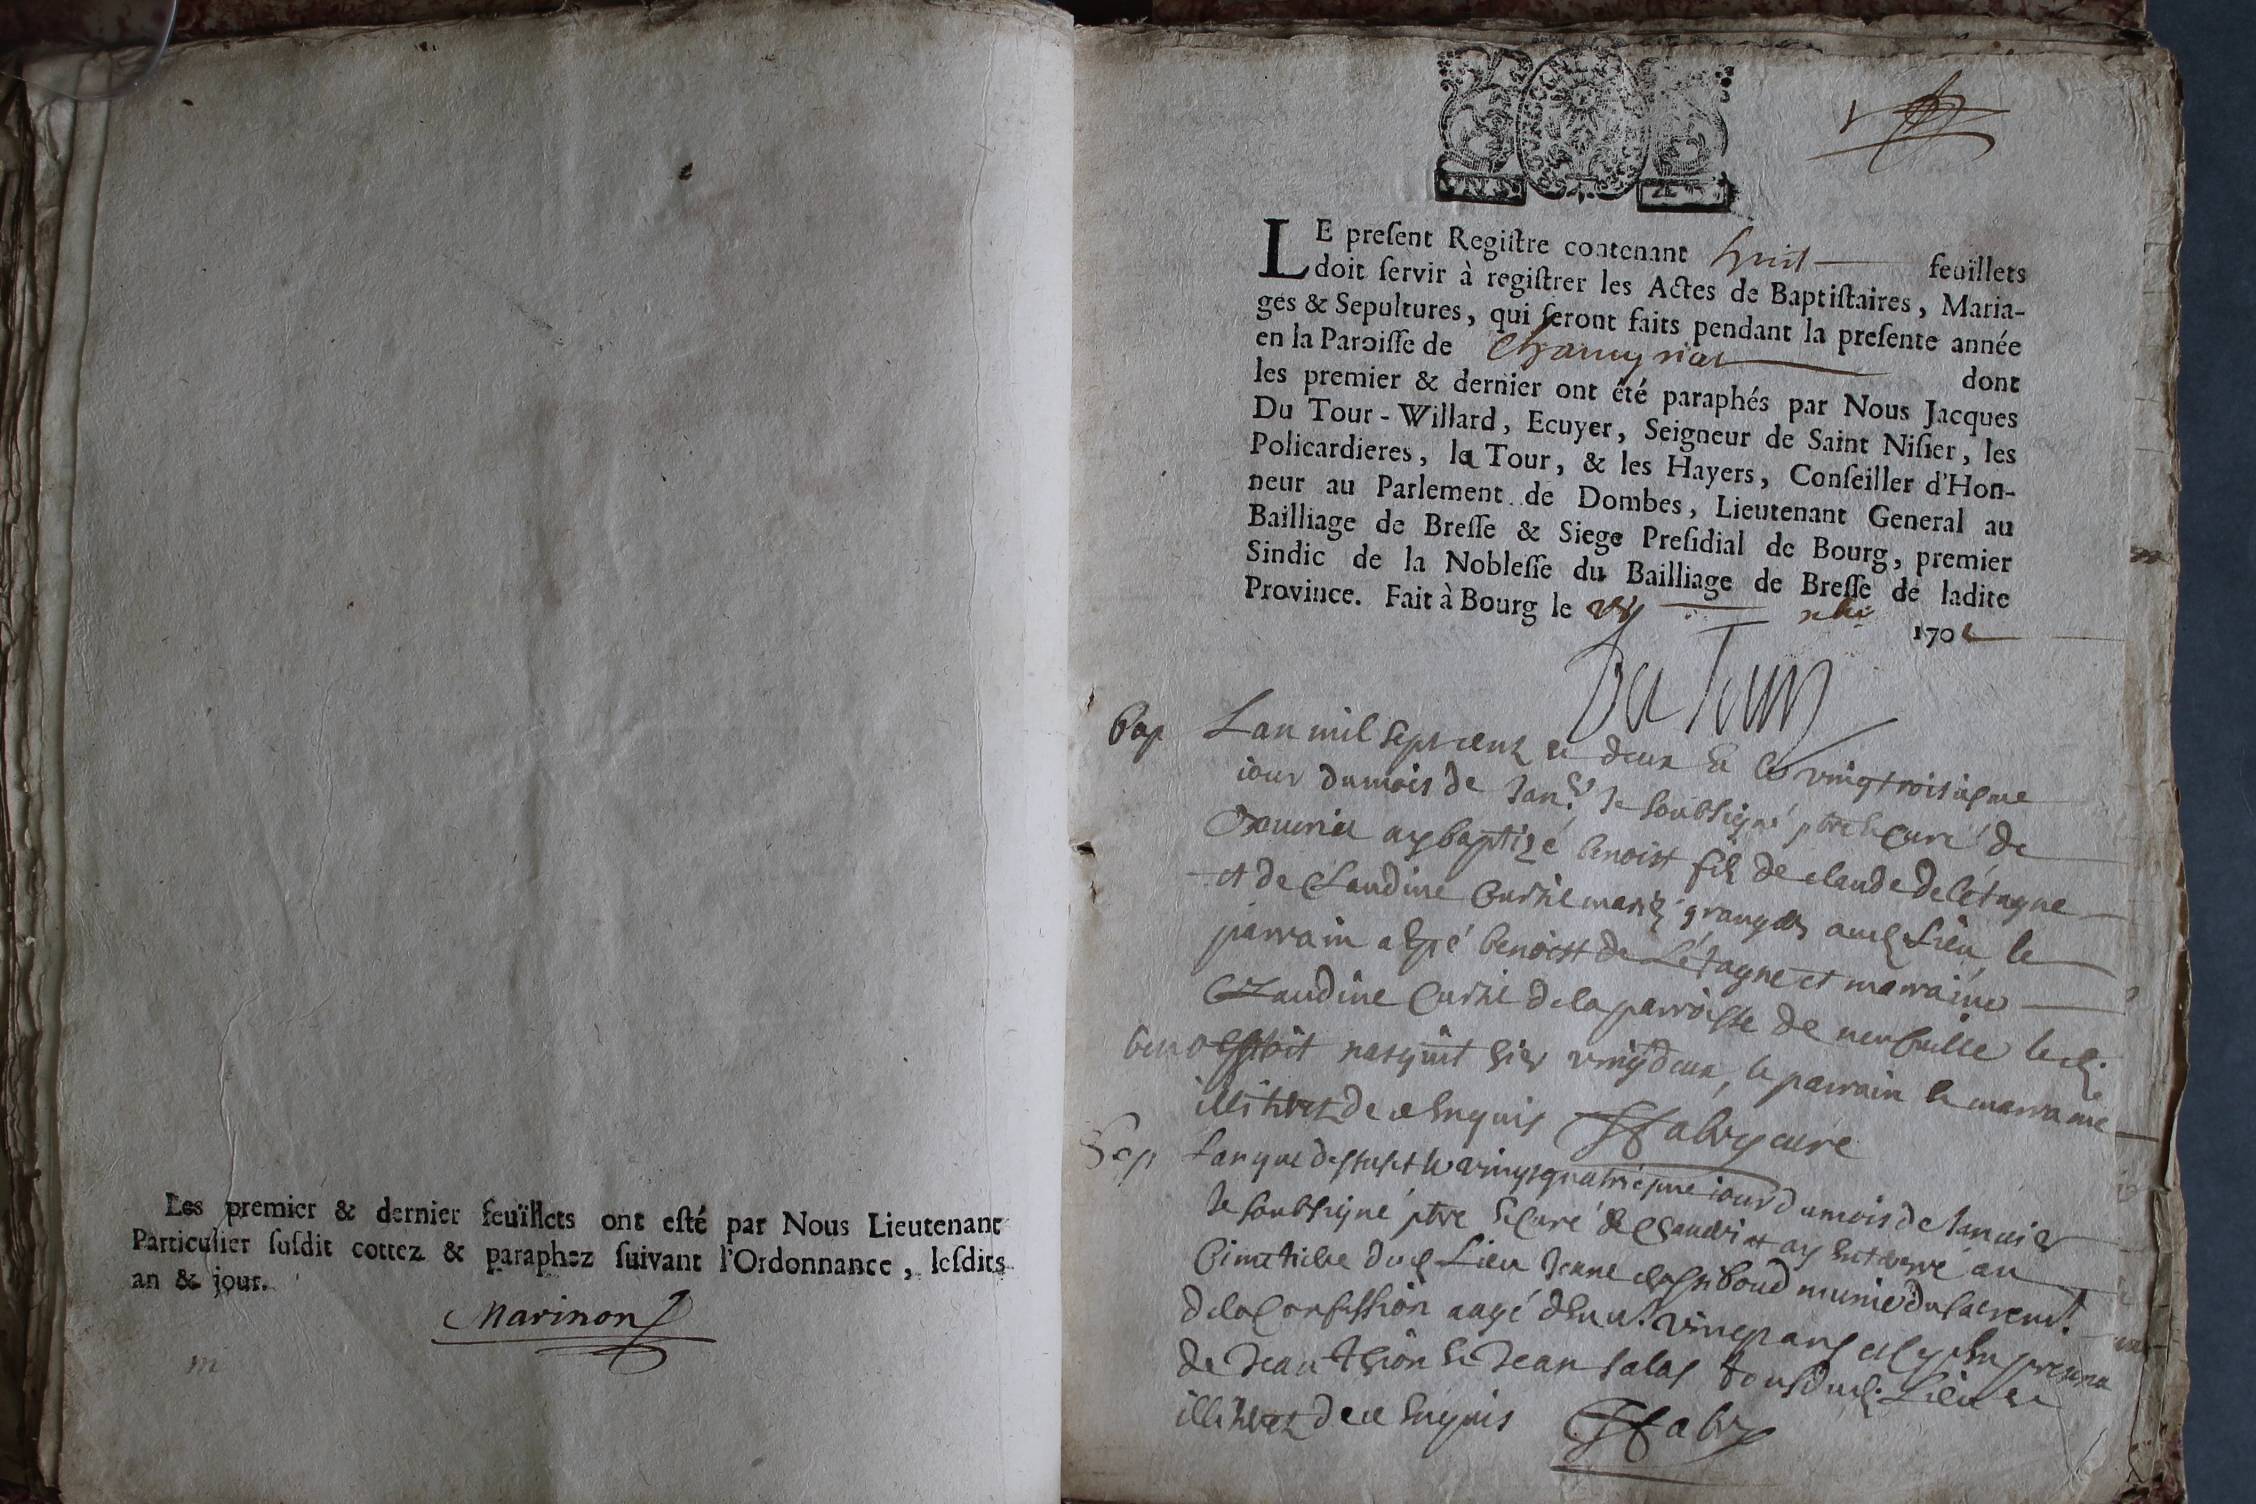 Les premier & dernier feuïllets ont eſté par Nous Lieutenant
Particulier ſuſdit cottez & paraphez ſuivant l'Ordonnance, leſdits
an & jour.
Marinon
LE preſent Regiſtre contenant huit feuïllets
doit ſervir à regiſtrer les Actes de Baptiſtaires, Maria-
ges & Sepultures, qui ſeront faits pendant la preſente année
en la Paroiſſe de dont
les premier & dernier ont été paraphés par Nous Jacques
Du Tour-Willard, Ecuyer, Seigneur de Saint Niſier, les
Policardieres, la Tour, & les Hayers, Conſeiller d'Hon-
neur au Parlement de Dombes, Lieutenant General au
Bailliage de Breſſe & Siege Preſidial de Bourg, premier
Sindic de la Nobleſſe du Bailliage de Breſſe de ladite
Province. Fait à Bourg le 170
Du Tour
Bap Lan mil sept cent et deux et le vingtroisiesme
iour du mois de Janr Je soubsigné ptre et curé de
ay baptizé benoist fils de claude de létagne
et de Claudine mariez grangers aud Lieu le
parrain a esté benoist de Létagne et marraine
Claudine de la parroisse de neufville led.
beno nasquit hier vingdeux, le parrain la marraine
illitirez de ce enquis Faby curé
Sep Lan que dessus et le vingtquatriesme iour du mois de Januier
Je soubsigné ptre et Curé de ay enterré au
Cimetiere dud Lieu munie du sacremt
de la Confession aagé denu. vingt ans
de Jean et Jean Salas tous dud. Lieu et
illitirez de ce enquis Faby